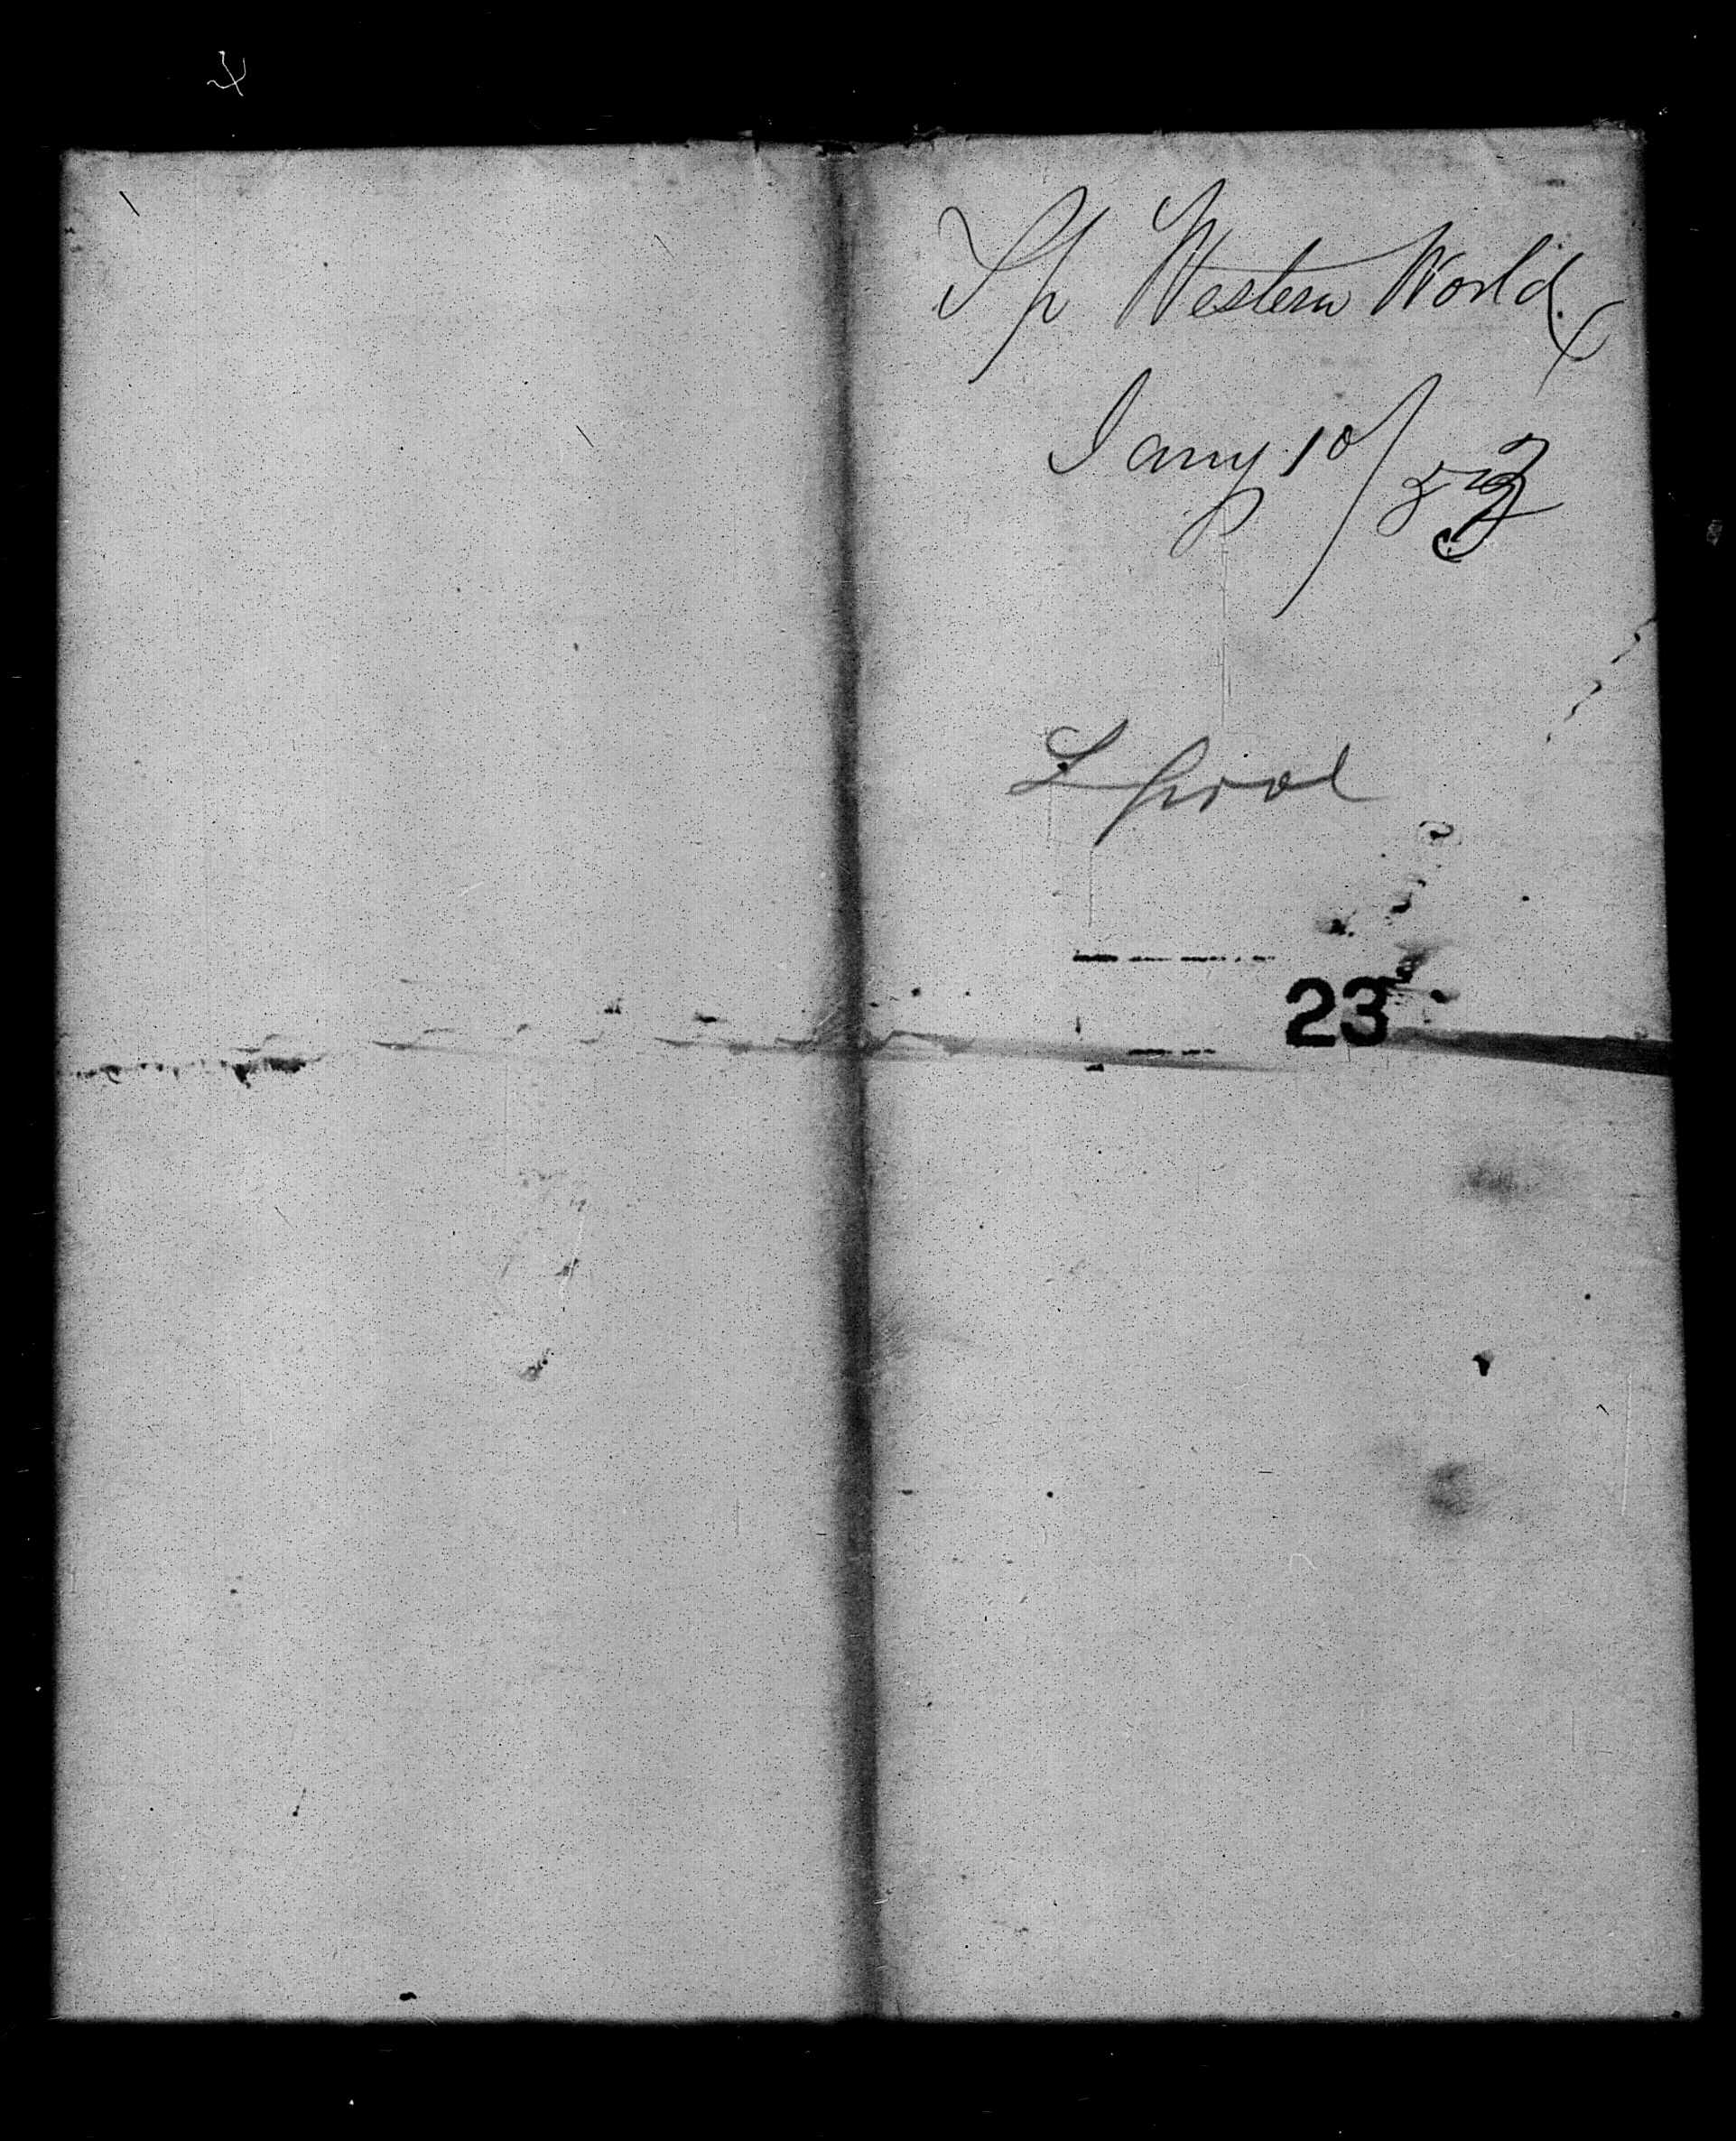 Sh Western World
Jany 10/53
Lpool
23